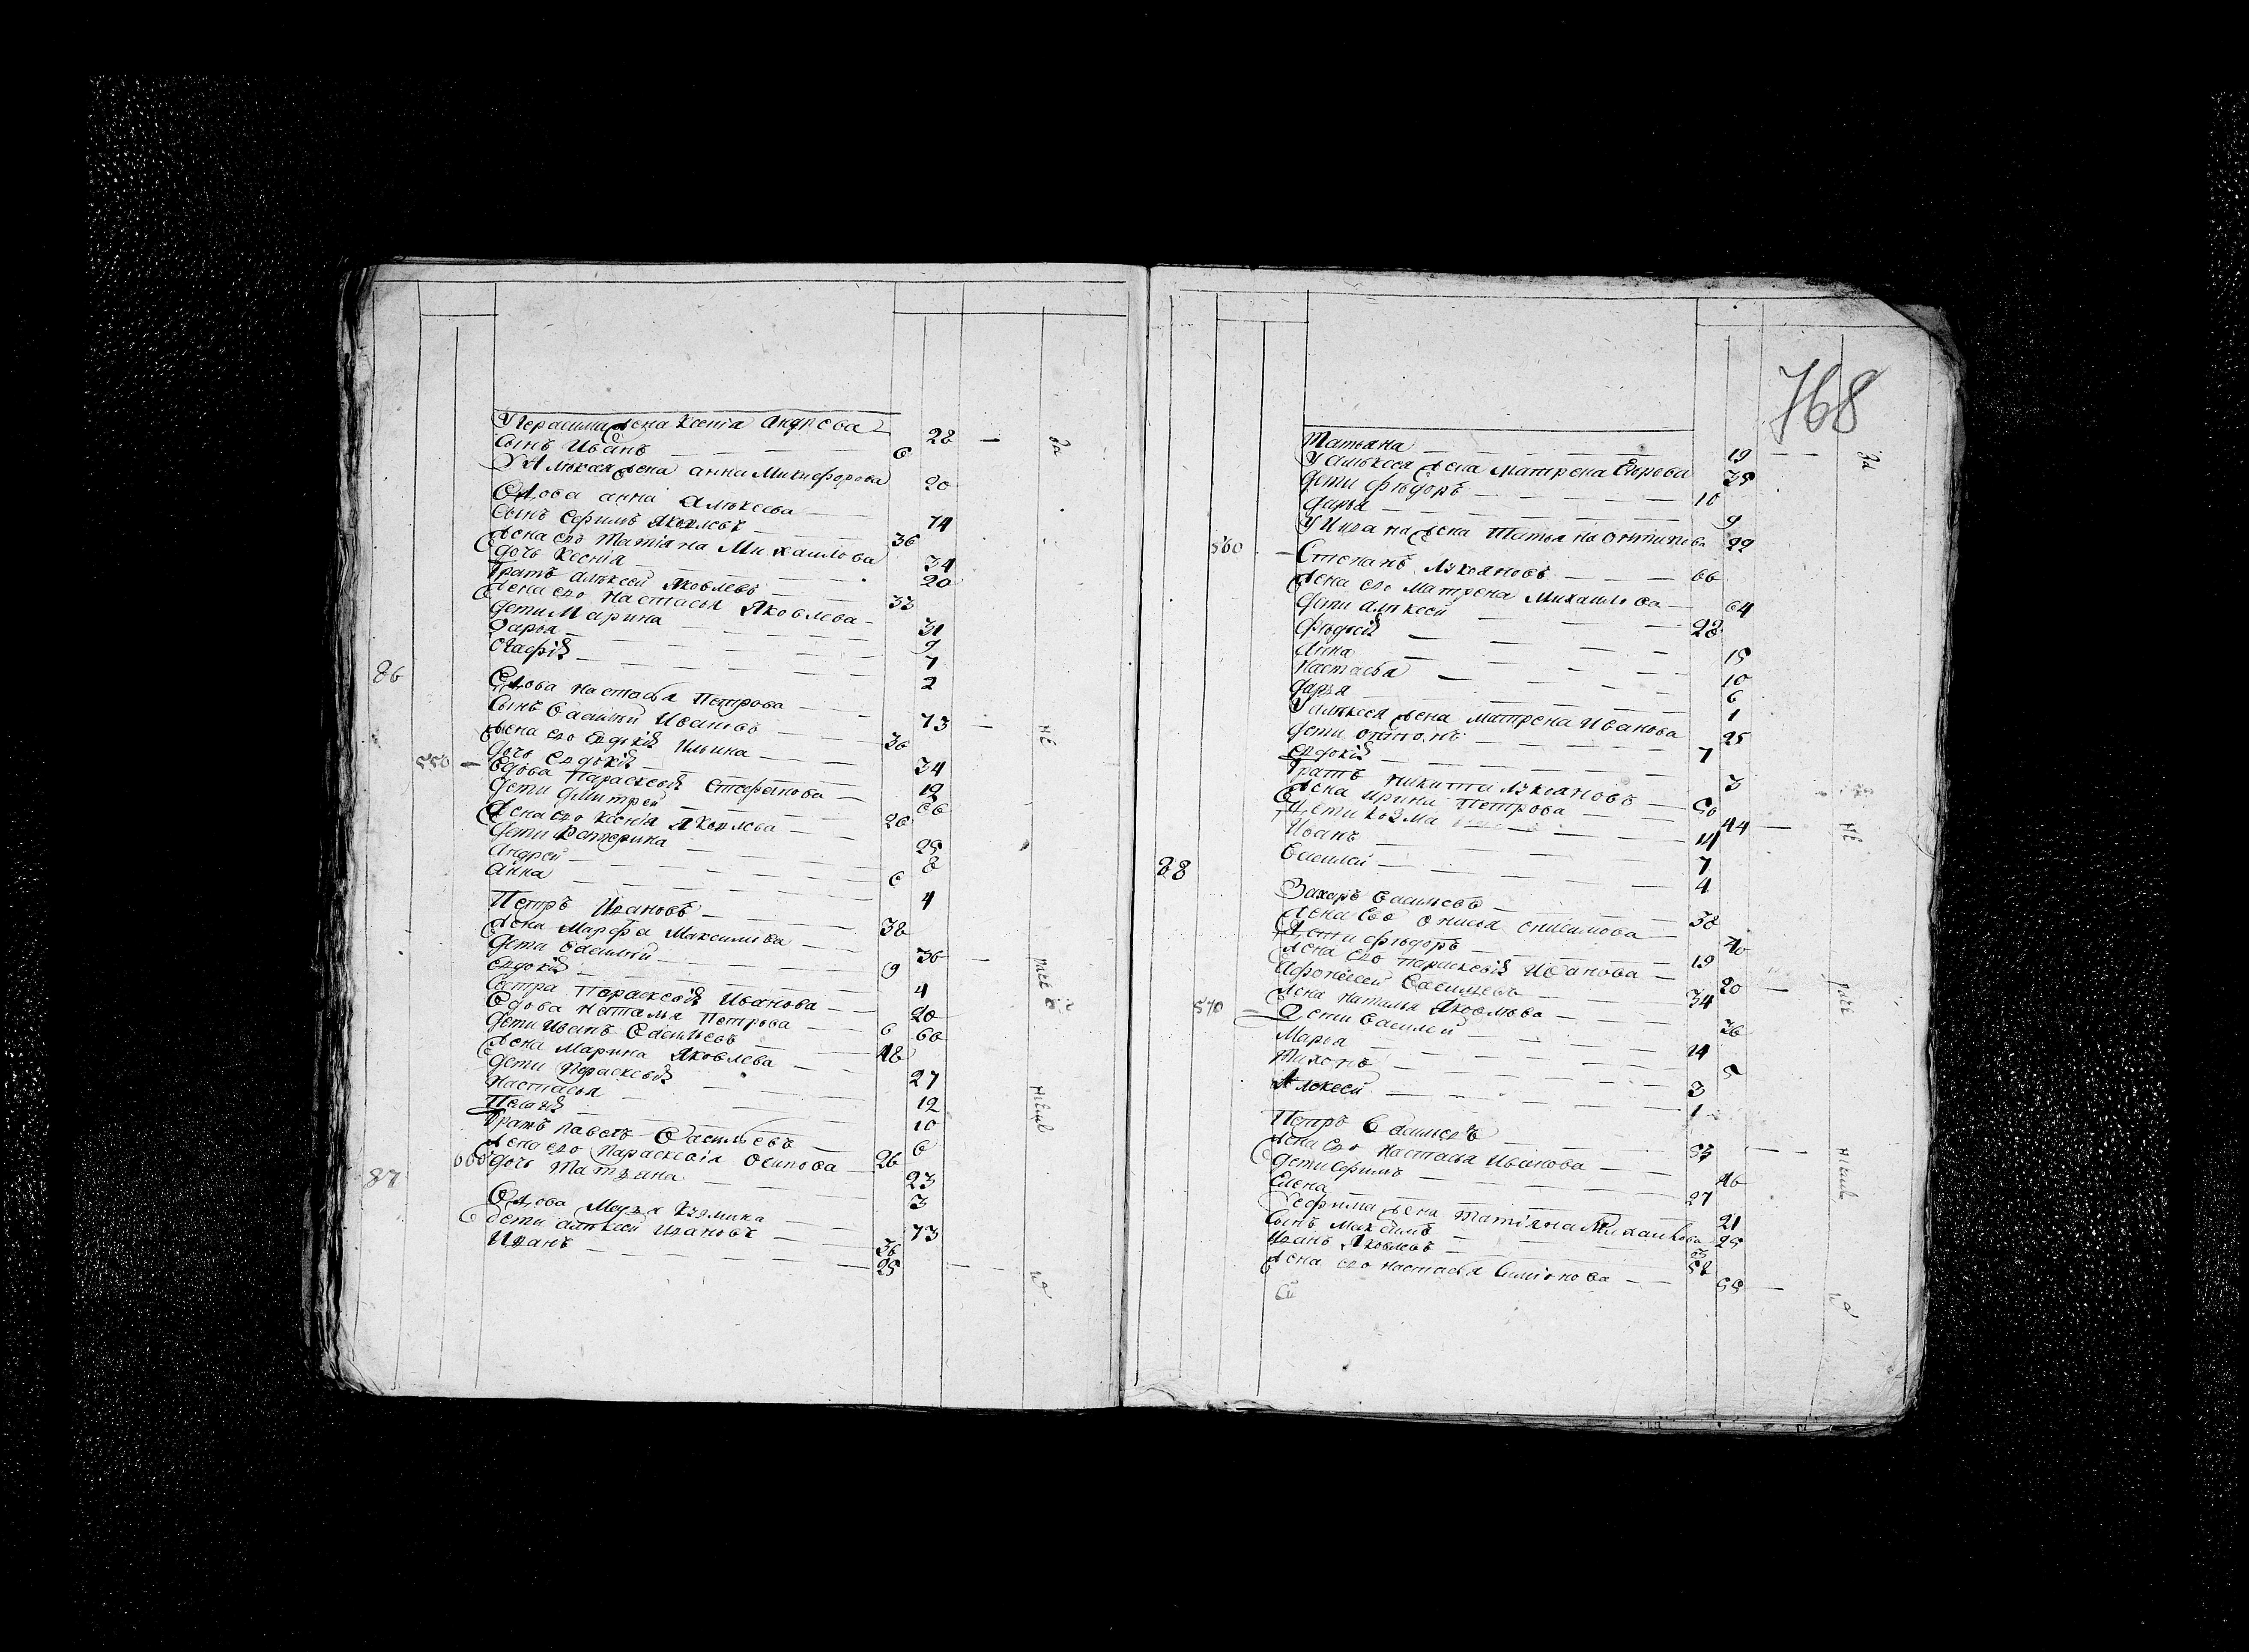 У Герасима жена Ксенiя Андреева 28 —
Сынъ Иванъ 6
У Алѣксея жена анна Микифорова 20
Вдова анна Алѣксеева 74
Сынъ Ефимъ Яковлевъ 36
Жена ево Татiяна Михаилова 34
дочь Ксенiя 20
Братъ алѣксей Яковлевъ 33
Жена ево настасья Яковлева 31
дети Марина 9
Дарья 7
Агафiя 2
86
Вдова настасья Петрова 73
Сынъ Василѣй Ивановъ 36
Жена ево Евдокiя Ильина 34
дочь Евдокiя 12
550 — Вдова Параскевiя Стефанова 66
дети дмитрей 26
Жена ево Ксенiя Яковлева 25
дети Катерина 8
Андрей 6
Анна 4
Петръ Ивановъ 38
Жена Марфа Максимова 36
дети Василѣй 9
Евдокiя 4
Сестра Параскевiя Иванова 20
Вдова наталья Петрова 60
дети Иванъ Васильевъ 48
Жена Марина Яковлева 27
дети Параскевiя 12
Настасья 10
Пелагiя 6
Братъ Павелъ Васильевъ 26
Жена ево Параскевiя Осипова 23
дочь Татьяна 3
87
Вдова Марья Кузмина 73
дети алѣксей Ивановъ 36
Иванъ 25
768
Татьяна 19
У алѣксея жена матрена Егорова 35
дети Фѣдоръ 10
дарья 9
У Ивана жена Татьяна онтипева 22
560 — Степанъ Лукояновъ 66
Жена ево матрена Михаилова 64
дети алѣксей 28
Фѣдосiя 15
Анна 10
настасья 6
дарья 1
У алѣксея жена матрена Иванова 25
дети 7
Евдокiя 3
Братъ никита Лукояновъ 50
Жена ирина Петрова 44
дети Козма 14
Иванъ 7
Василей 4
88
Захаръ Васильевъ 38
Жена Ево онисимова 40
дети фѣдоръ 19
Жена ево параскевiя Иванова 20
Васильевъ 34
Жена наталья Яковлева 36
570 — Дети Василей 14
Марья 5
Тихонъ 3
Алѣксей 1
Петръ Васильевъ
Жена ево настасья Иванова 46
дети Ефимъ 27
Елена 21
У ефима жена татiяна Михаилова 25
Сынъ Максимъ
Иванъ Яковлевъ 58
Жена ево настасья Симiонова 55